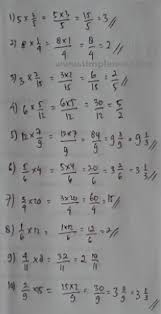 1) 5 × 3/5 = 5×3/5 = 15/5 = 3 //
2) 8 × 1/4 = 8×1/4 = 8/4 = 2 //
3) 3 × 2/15 = 3×2/15 = 6/15 = 2/5 //
4) 6 × 5/12 = 6×5/12 = 30/12 = 5/2
5) 12 × 7/9 = 12×7/9 = 84/9 = 9 3/9 = 9 1/3
6) 5/6 × 4 = 5×4/6 = 20/6 = 3 2/6 = 3 1/3 //
7) 3/4 × 20 = 3×20/4 = 60/4 = 15 //
8) 1/6 × 12 = 1×12/6 = 12/6 = 2 //
9) 4/11 × 8 = 32/11 = 2 10/11
10) 2/9 × 15 = 15×2/9 = 30/9 = 3 3/9 = 3 1/3 //